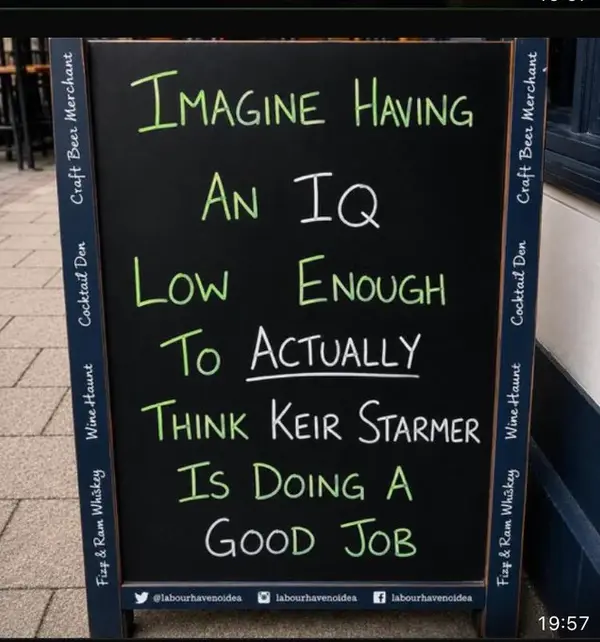 IMAGINE HAVING
AN IQ
LOW ENOUGH
TO ACTUALLY
THINK KEIR STARMER
IS DOING A
GOOD JOB
@labourhavenoidea labourhavenoidea labourhavenoidea
Craft Beer Merchant
Cocktail Den
Wine Haunt
Fizz & Ram Whiskey
Craft Beer Merchant
Cocktail Den
Wine Haunt
Fizz & Ram Whiskey
19:57